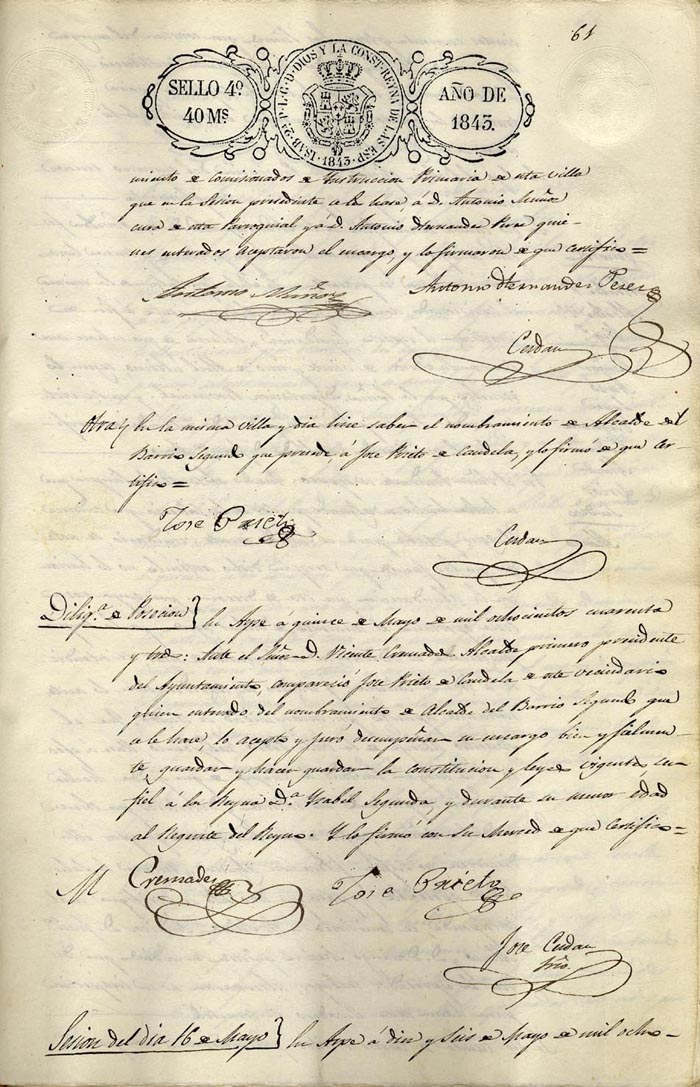 61
SELLO 4º
40 Mˢ
ISAB. 2ª P. L. G. D. DIOS Y LA CONST. REYNA DE LAS ESP.
1843.
AÑO DE
1843.
miento de Comisionados de Instruccion Primaria de esta villa
que en la Sesion precedente se hace, á D. Antonio Muñoz
cura de esta Parroquial y á D. Antonio Hernandez Perez quie-
nes enterados aceptaron el encargo y lo firmaron de que certifico =
Antonio Muñoz
Antonio Hernandez Perez
Cerdan
Otra } En la misma villa y dia hice saber el nombramiento de Alcalde del
Barrio Segundo que precede, á Jose Prieto de Candela, y lo firmó de que cer-
tifico =
Jose Prieto
Cerdan
Diligª. de Posecion } En Aspe á quince de Mayo de mil ochocientos cuarenta
y tres: Ante el Señor D. Vicente Cremades Alcalde primero presidente
del Ayuntamiento, compareció Jose Prieto de Candela de este vecindario
quien enterado del nombramiento de Alcalde del Barrio Segundo que
se le hace, lo acepto y juró desempeñar su encargo bien y fielmen-
te, guardar y hacer guardar la constitucion y leyes vigentes, ser
fiel á la Reyna D.ª Ysabel Segunda y durante su menor edad
al Regente del Reyno. Y lo firmó con Su Merced de que certifico =
M Cremades
Jose Prieto
Jose Cerdan
Srio.
Sesion del dia 16 de Mayo } En Aspe a diez y seis de Mayo de mil ocho-